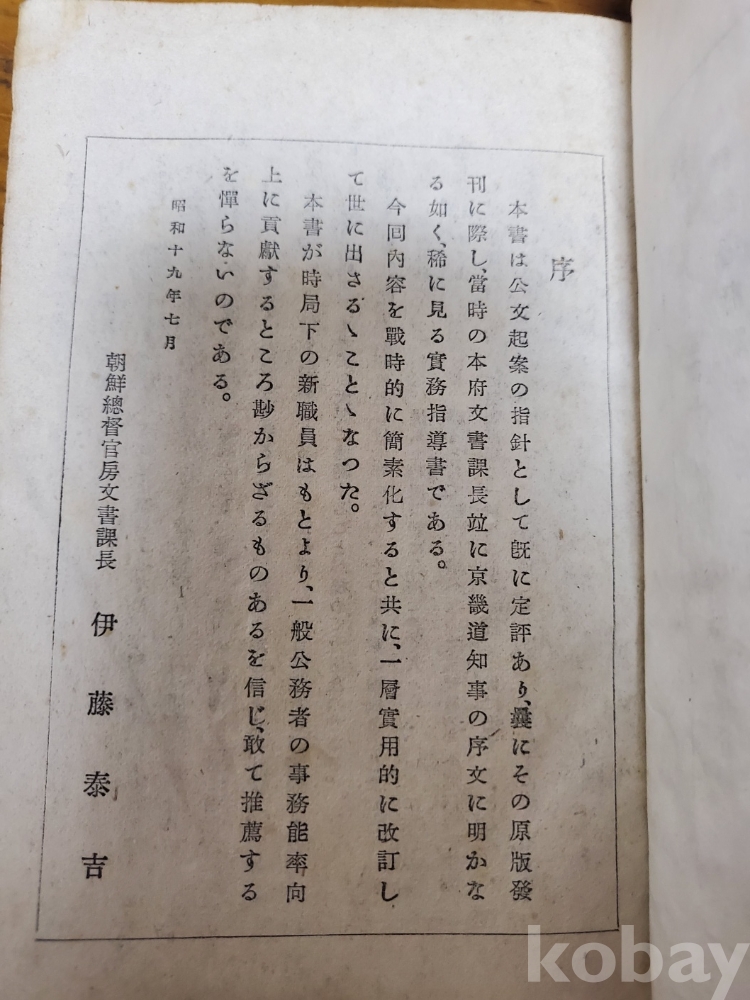 序
本書は公文起案の指針として既に定評あり、曩にその原版發
刊に際し、當時の本府文書課長竝に京畿道知事の序文に明かな
る如く、稀に見る實務指導書である。
今回內容を戰時的に簡素化すると共に、一層實用的に改訂し
て世に出さるゝことゝなつた。
本書が時局下の新職員はもとより、一般公務者の事務能率向
上に貢獻するところ尠からざるものあるを信じ、敢て推薦する
を憚らないのである。
昭和十九年七月
朝鮮總督官房文書課長 伊藤泰吉
kobay